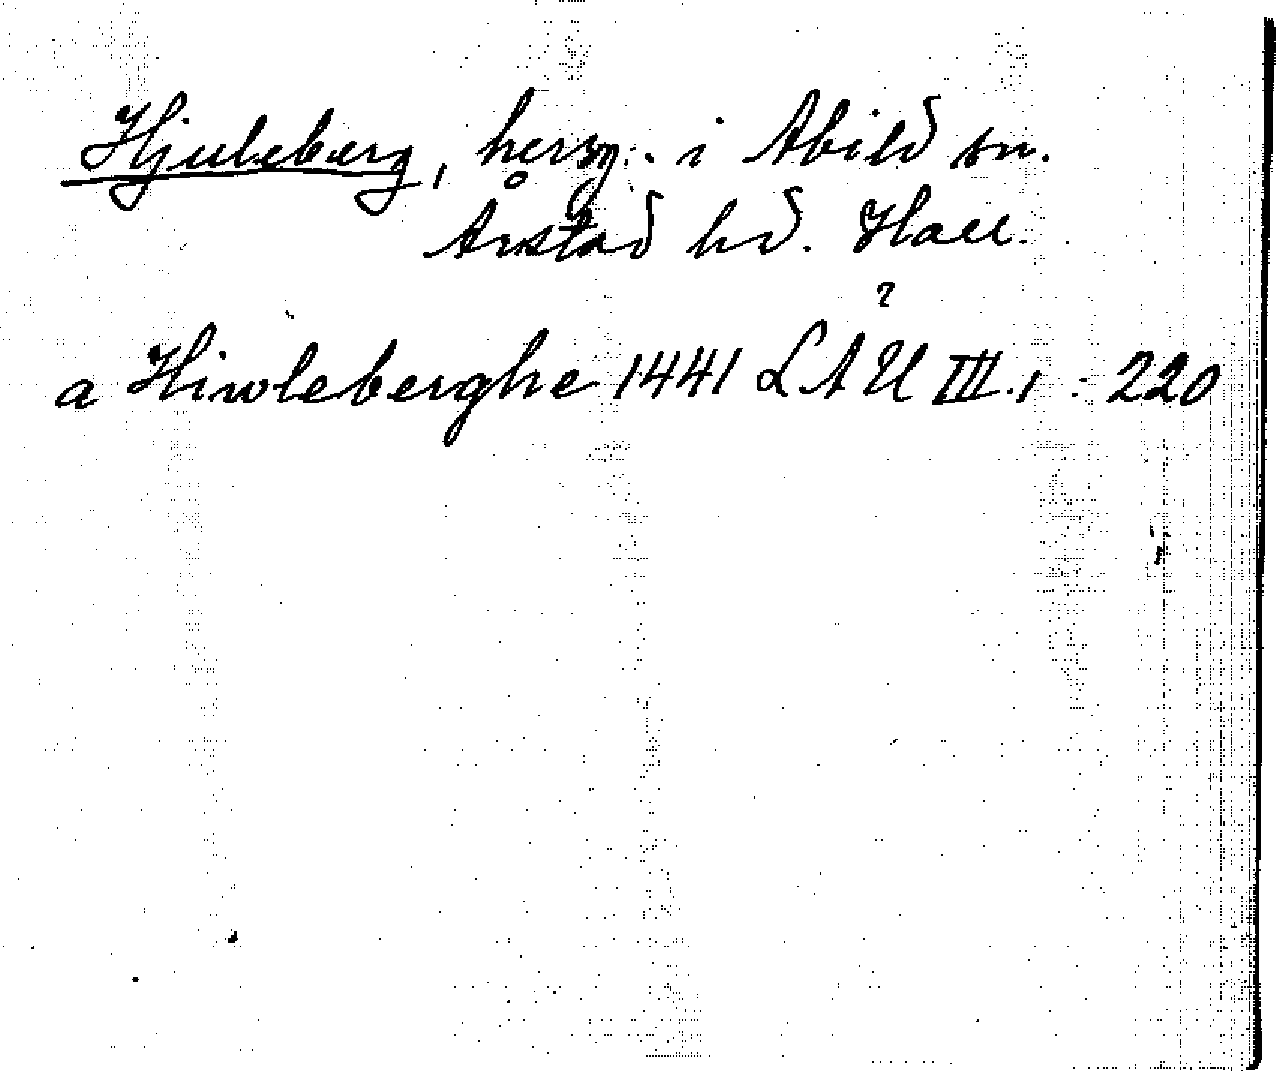 Hjuleberg, herrg. i Abild sn.
Årstad hd. Hall.
?
a Hiwleberghe 1441 LÄU III.1: 220